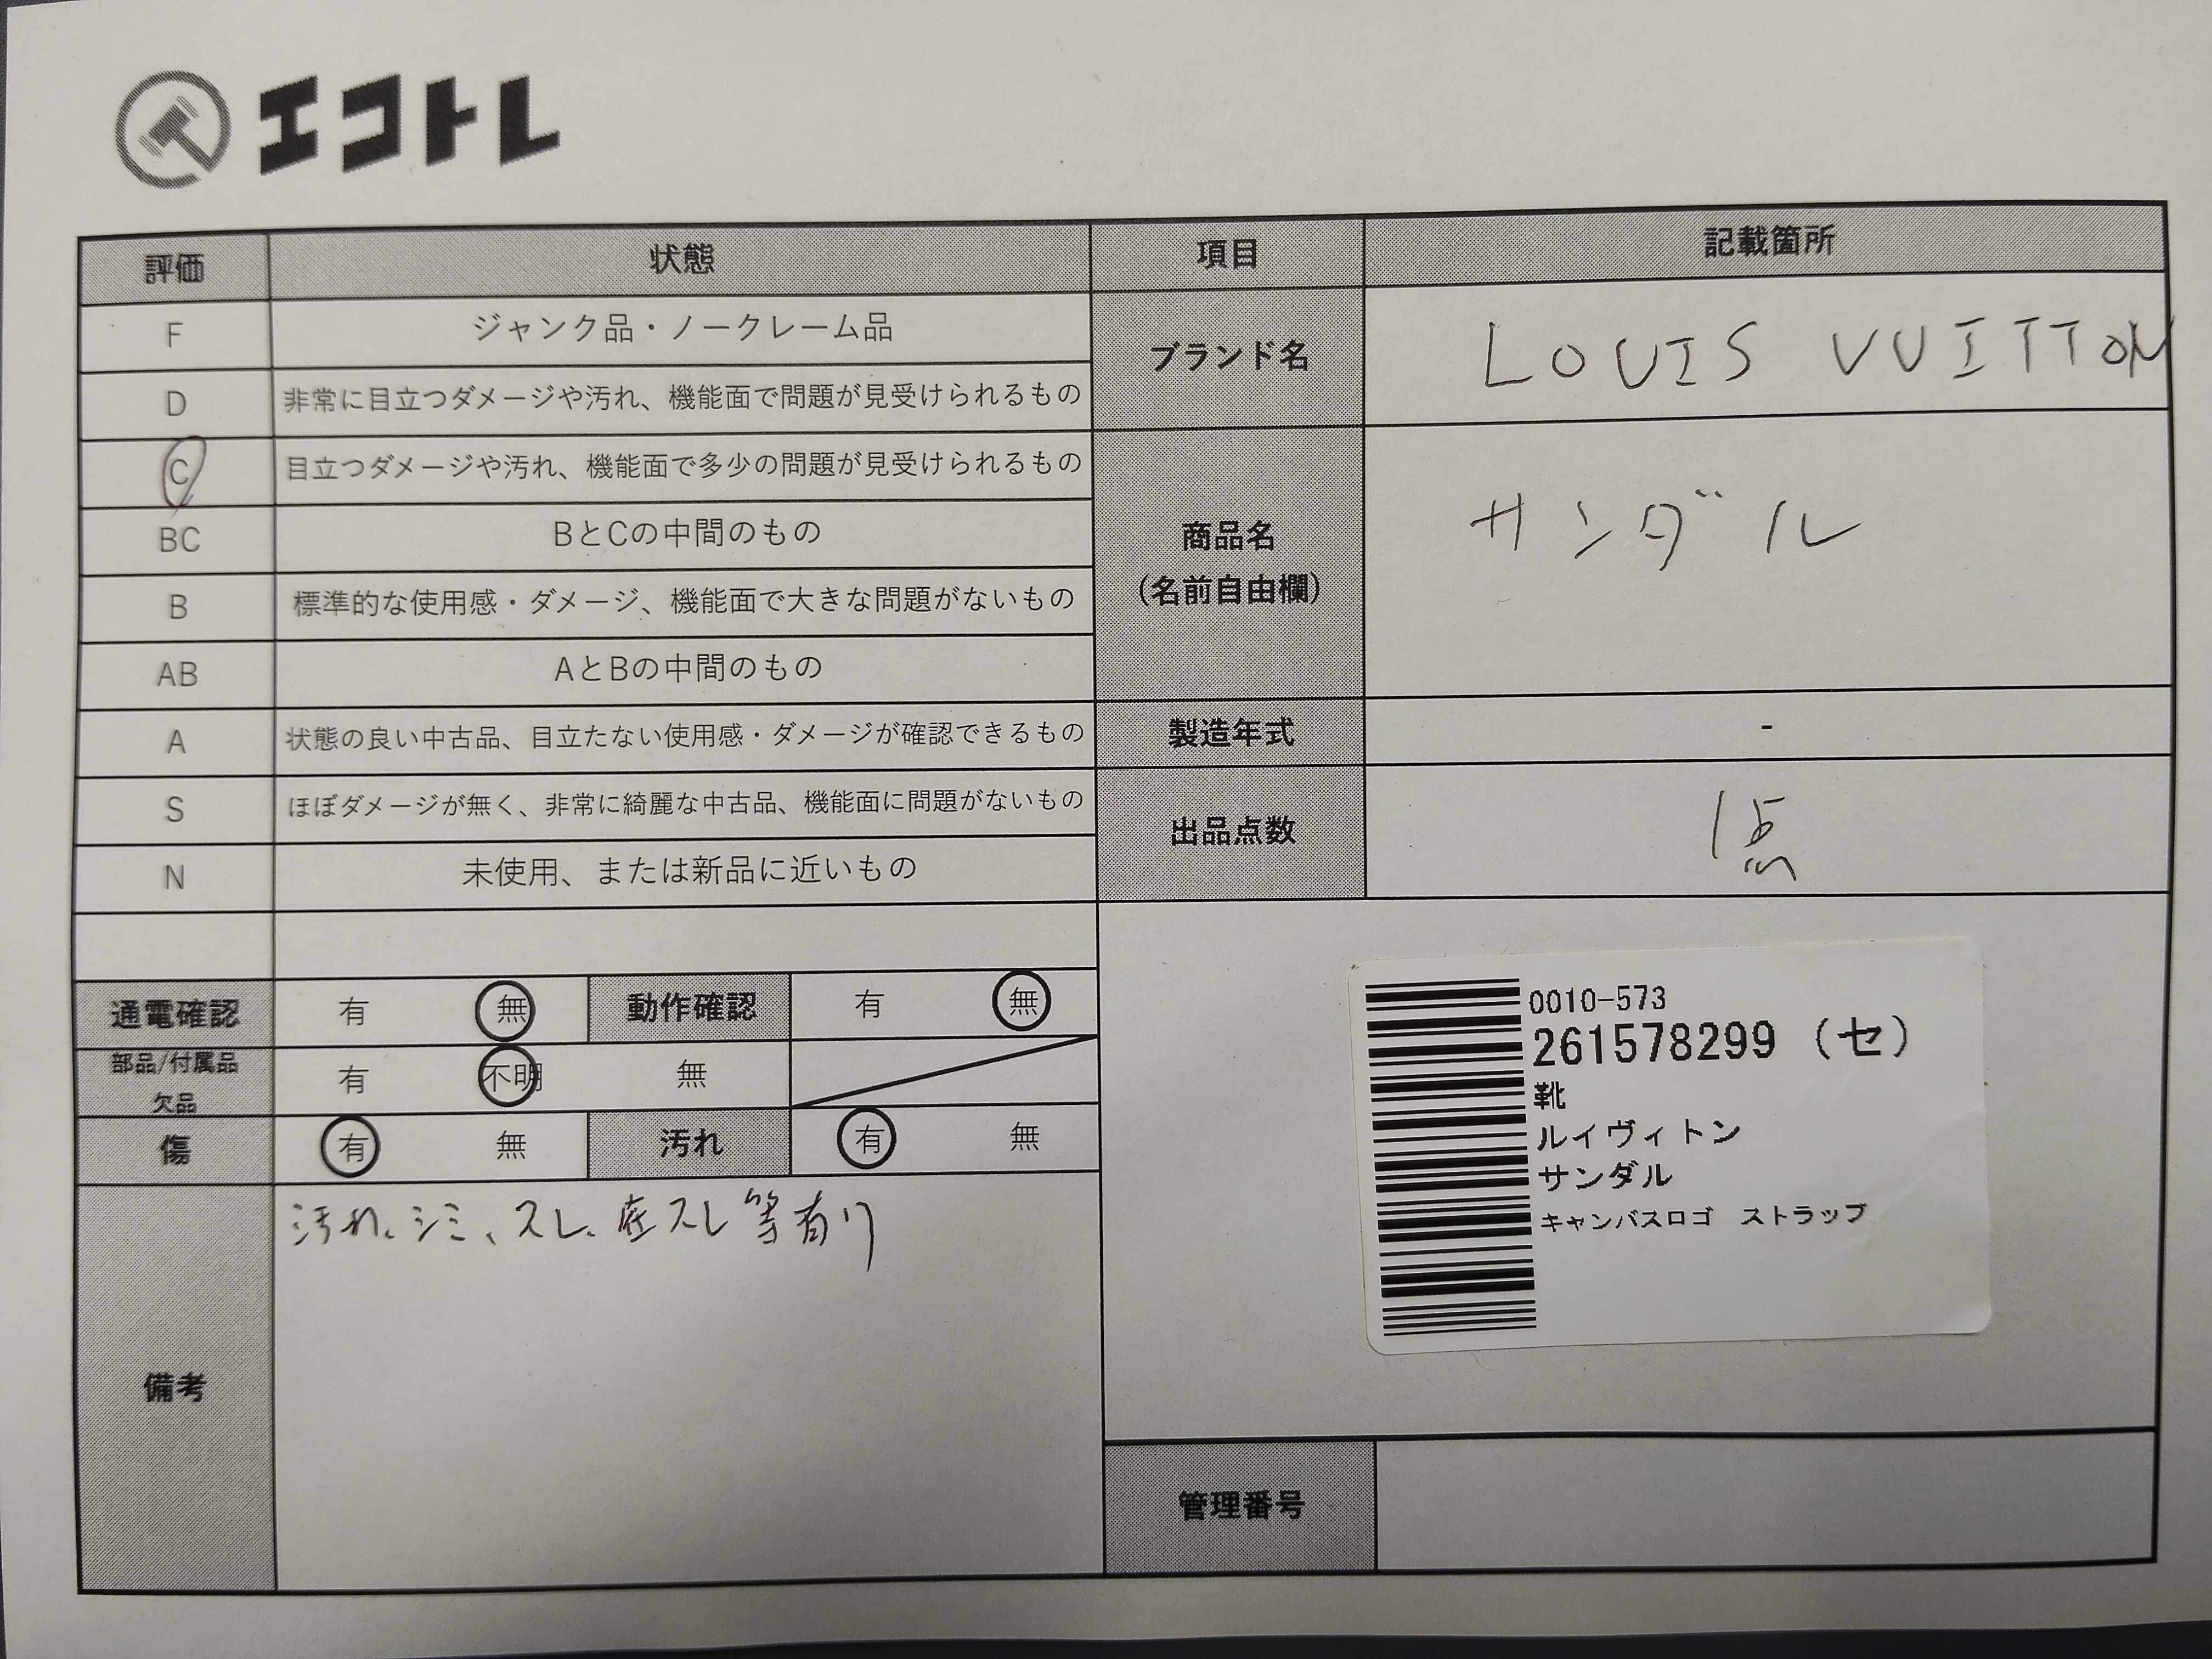 エコトレ
評価 状態 項目 記載箇所
F ジャンク品・ノークレーム品
D 非常に目立つダメージや汚れ、機能面で問題が見受けられるもの
C 目立つダメージや汚れ、機能面で多少の問題が見受けられるもの
BC BとCの中間のもの
B 標準的な使用感・ダメージ、機能面で大きな問題がないもの
AB AとBの中間のもの
A 状態の良い中古品、目立たない使用感・ダメージが確認できるもの
S ほぼダメージが無く、非常に綺麗な中古品、機能面に問題がないもの
N 未使用、または新品に近いもの
ブランド名 LOUIS VUITTON
商品名
(名前自由欄)
サンダル
製造年式 -
出品点数 1点
通電確認 有 無 動作確認 有 無
部品/付属品
欠品
有 不明 無
傷 有 無 汚れ 有 無
備考
汚れ、シミ、スレ、底スレ等有り
0010-573
261578299 (セ)
靴
ルイヴィトン
サンダル
キャンバスロゴ ストラップ
管理番号